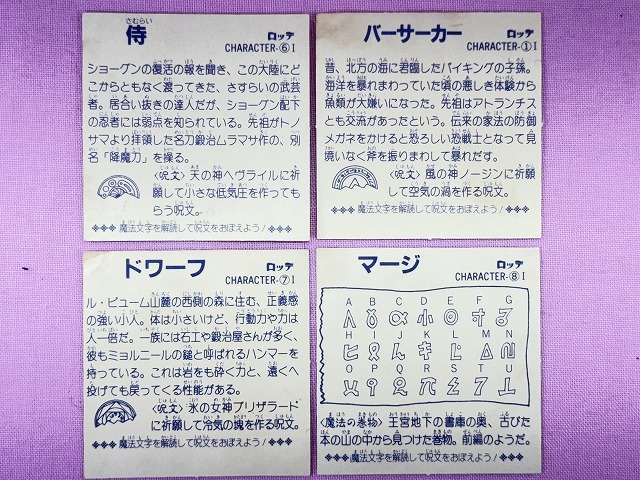 侍
ロッテ
CHARACTER-⑥I
ショーグンの復活の報を聞き、この大陸にど
こからともなく渡ってきた、さすらいの武芸
者。居合い抜きの達人だが、ショーグン配下
の忍者には弱点を知られている。先祖がトノ
サマより拝領した名刀鍛冶ムラマサ作の、別
名「降魔刀」を操る。
〈呪文〉天の神ヘヴライルに祈
願して小さな低気圧を作っても
らう呪文。
◆◆◆魔法文字を解読して呪文をおぼえよう!◆◆◆
バーサーカー
ロッテ
CHARACTER-①I
昔、北方の海に君臨したバイキングの子孫。
海洋を暴れまわっていた頃の悪しき体験から
魚類が大嫌いになった。先祖はアトランチス
とも交流があったという。伝来の家法の防御
メガネをかけると恐ろしい恐戦士となって見
境いなく斧を振りまわして暴れだす。
〈呪文〉風の神ノージンに祈願
して空気の渦を作る呪文。
◆◆◆魔法文字を解読して呪文をおぼえよう!◆◆◆
ドワーフ
ロッテ
CHARACTER-⑦I
ル・ピューム山麓の西側の森に住む、正義感
の強い小人。体は小さいけど、行動力や力は
人一倍だ。一族には石工や鍛冶屋さんが多く、
彼もミョルニールの鎚と呼ばれるハンマーを
持っている。これは岩をも砕く力と、遠くへ
投げても戻ってくる性能がある。
〈呪文〉氷の女神ブリザラード
に祈願して冷気の塊を作る呪文。
◆◆◆魔法文字を解読して呪文をおぼえよう!◆◆◆
マージ
ロッテ
CHARACTER-⑧I
A B C D E F G
H I J K L M N
O P Q R S T U
〈魔法の巻物〉王宮地下の書庫の奥、古びた
本の山の中から見つけた巻物。前編のようだ。
◆◆◆魔法文字を解読して呪文をおぼえよう!◆◆◆